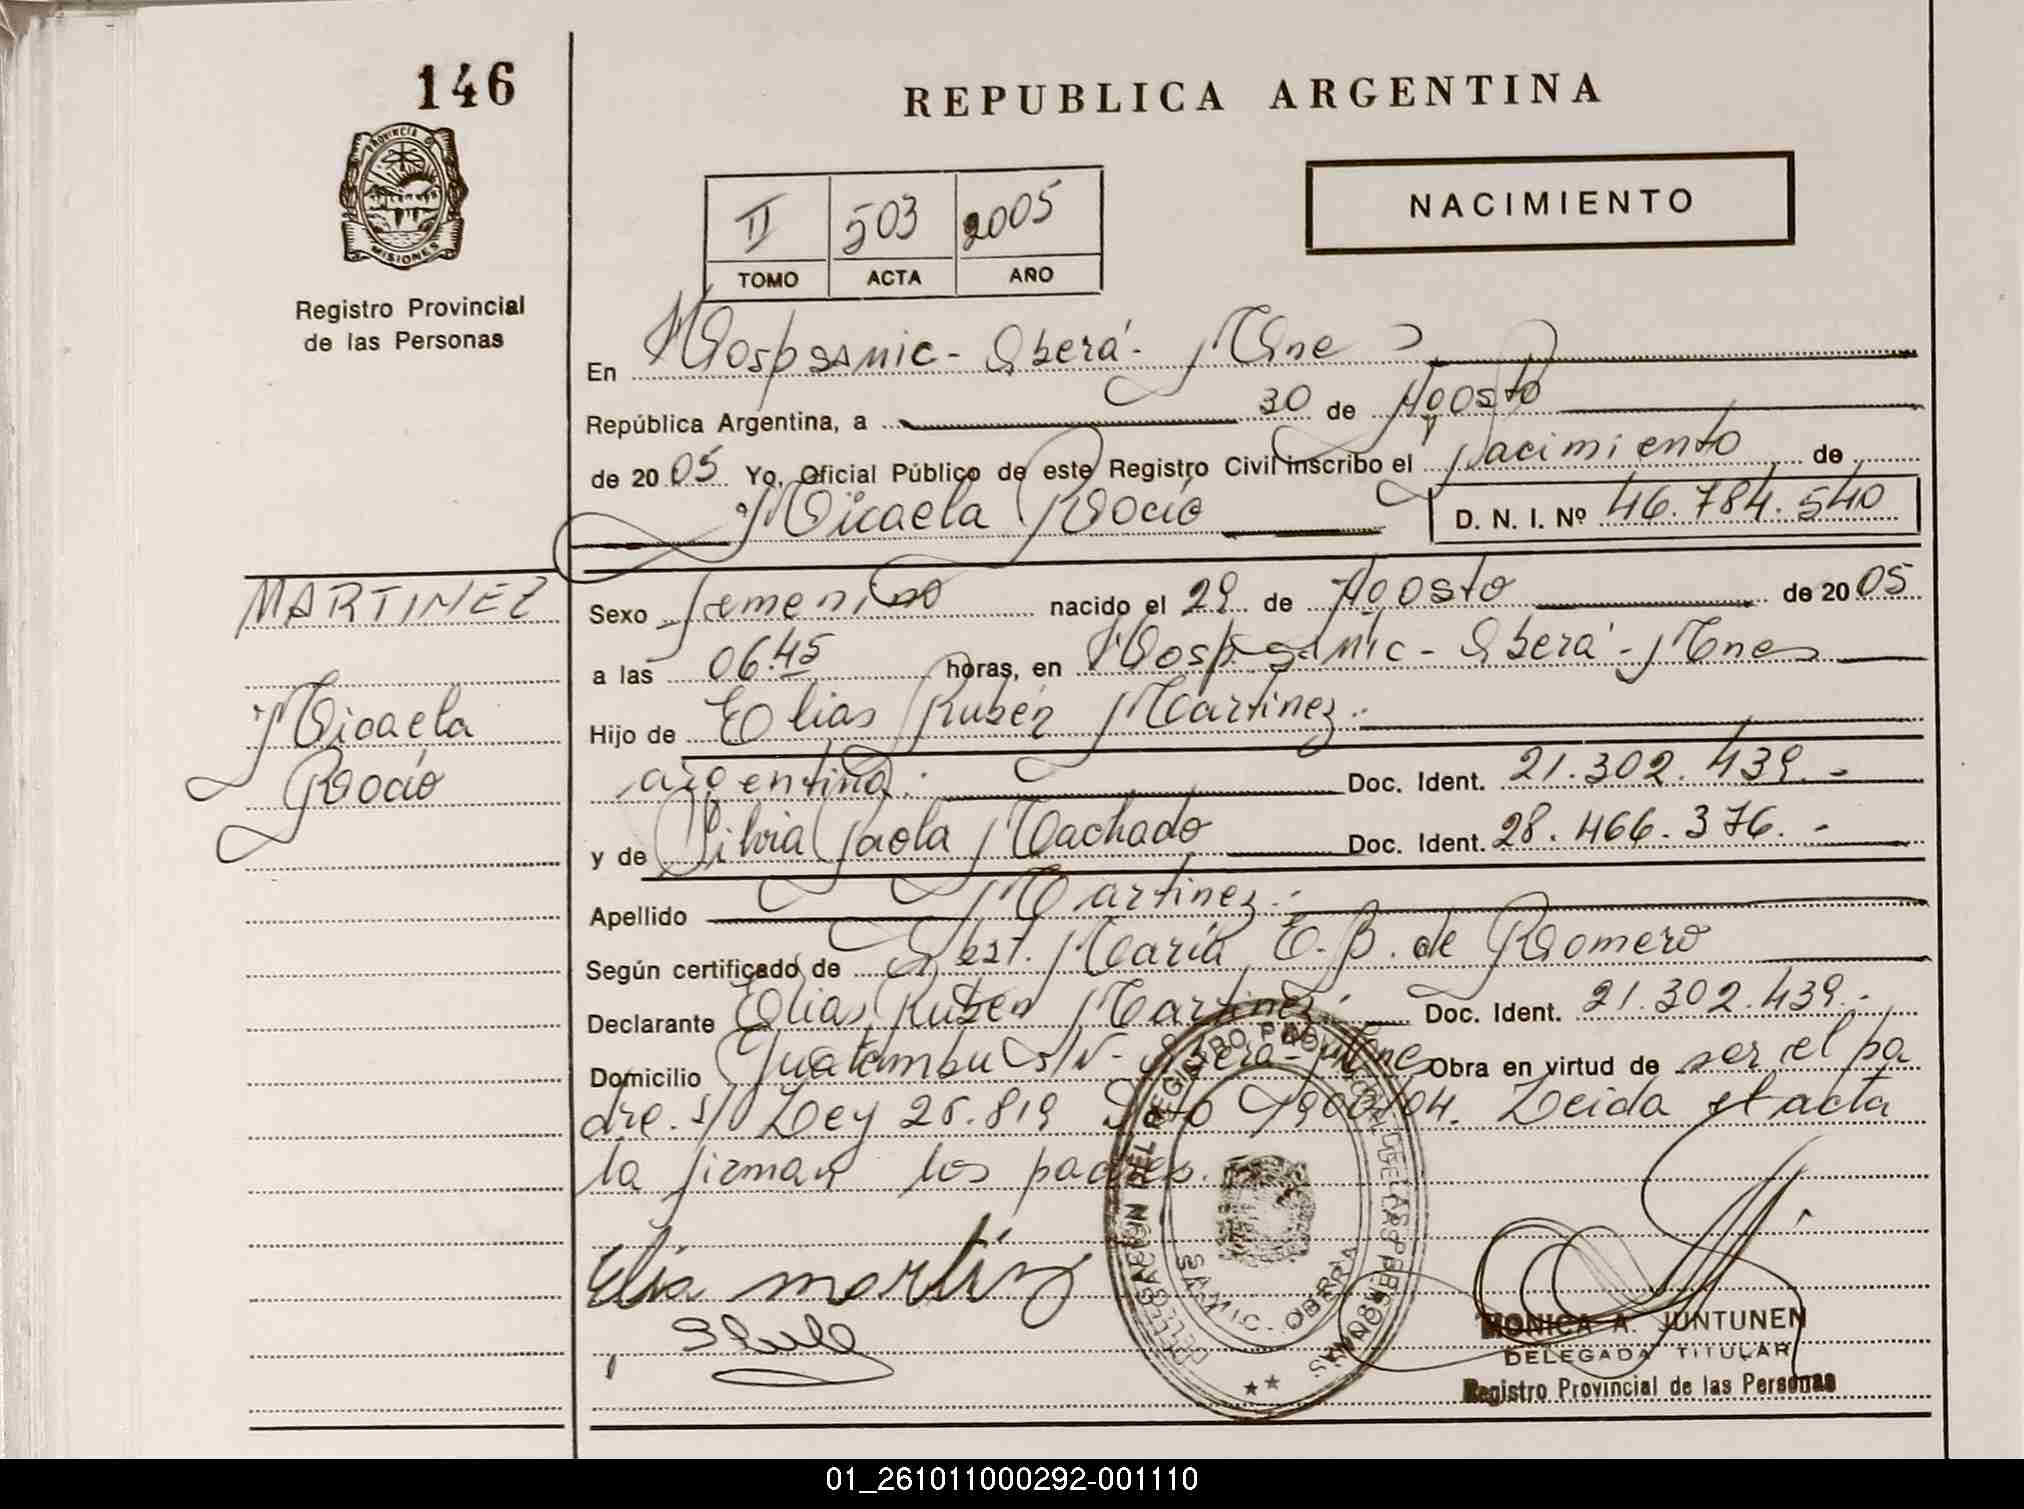 146
REPUBLICA ARGENTINA
PROVINCIA DE
MISIONES
Registro Provincial
de las Personas
NACIMIENTO
II 503 2005
TOMO ACTA AÑO
En Hospsamic - Oberá - Mnes
República Argentina, a 30 de Agosto
de 20 05 Yo, Oficial Público de este Registro Civil inscribo el Nacimiento de
Micaela Rocío D. N. I. Nº 46.784.540
MARTINEZ
Micaela
Rocío
Sexo femenino nacido el 29 de Agosto de 20 05
a las 06.45 horas, en Hospsamic - Oberá - Mnes
Hijo de Elias Rubén Martinez.-
argentina.- Doc. Ident. 21.302.439.-
y de Silvia Paola Machado Doc. Ident. 28.466.376.-
Apellido Martinez.-
Según certificado de Obst. María E. B. de Romero
Declarante Elias Rubén Martinez.- Doc. Ident. 21.302.439.-
Domicilio Guatambu S/N - Oberá - Mnes Obra en virtud de ser el pa
dre. s/ Ley 25.819 Dto 1900/04. Leida el acta
la firman los padres.
Elia martinz
DELEGACIÓN DEL REGISTRO PROVINCIAL DE LAS PERSONAS
SAMIC - OBERA
MONICA A. JUNTUNEN
DELEGADA TITULAR
Registro Provincial de las Personas
01_261011000292-001110